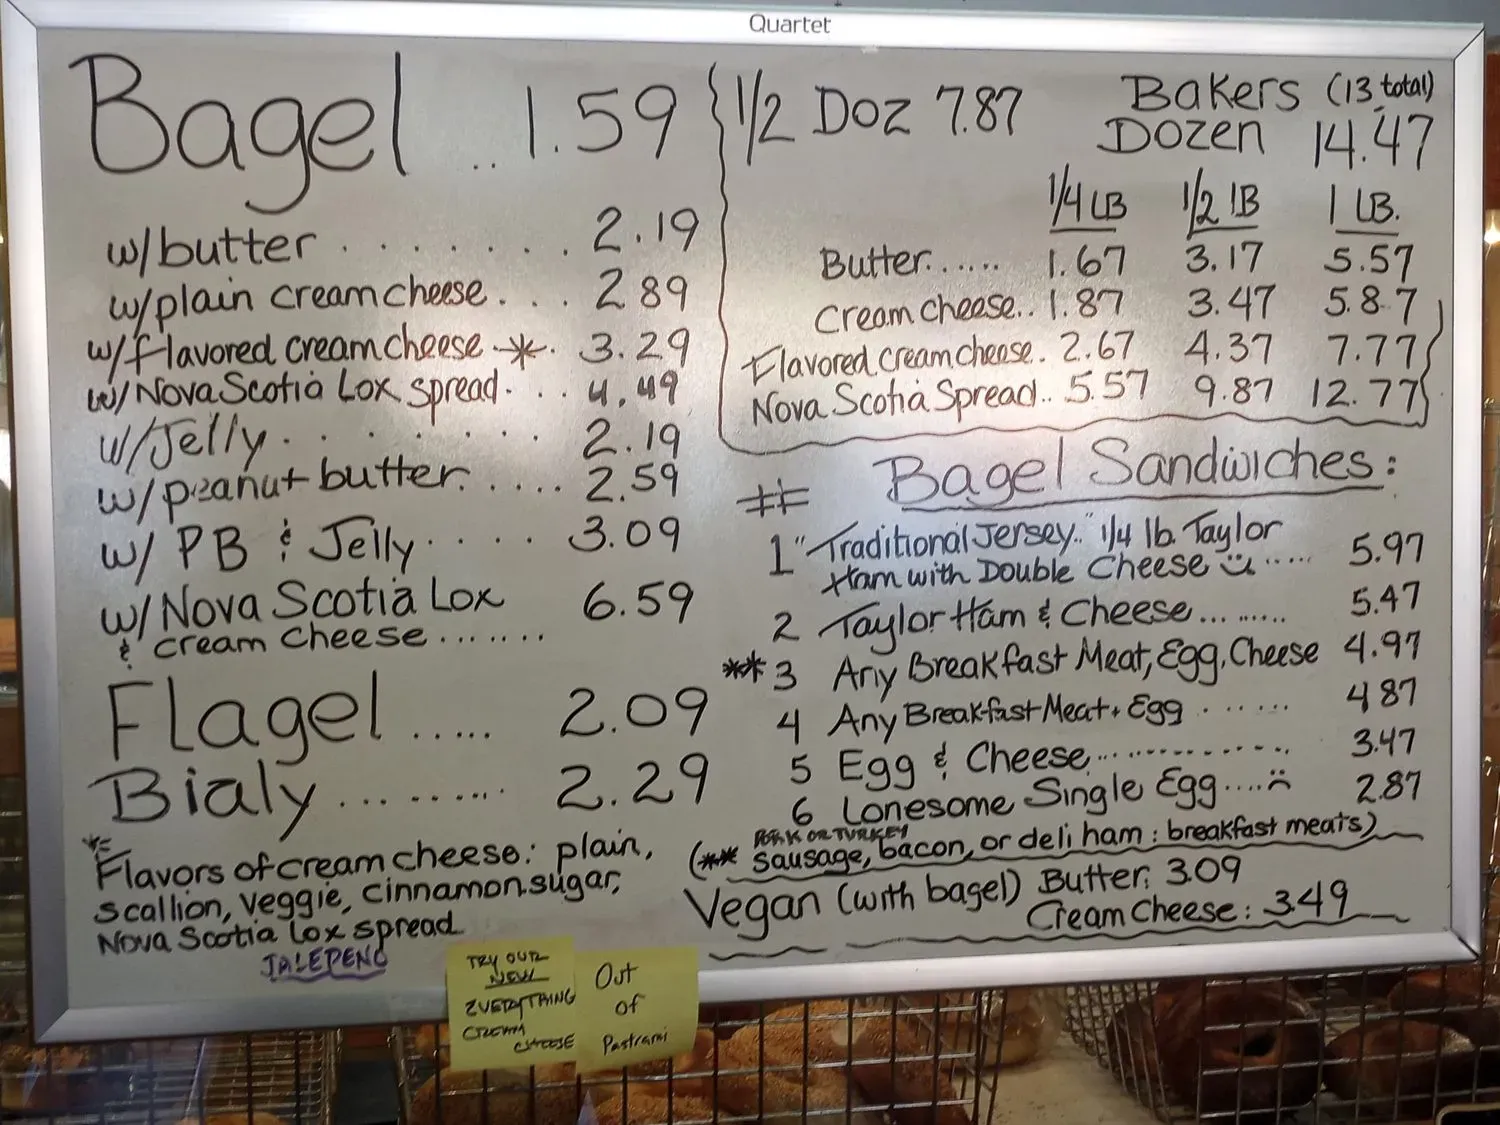 Quartet
Bagel .. 1.59
w/butter . . . . . . . . 2.19
w/plain cream cheese . . . 2 89
w/flavored cream cheese * . 3.29
w/Nova Scotia Lox spread . . . 4.49
w/Jelly . . . . . . . . 2.19
w/peanut butter. . . . . . 2.59
w/ PB & Jelly . . . . . 3.09
w/Nova Scotia Lox 6.59
& cream cheese .......
Flagel ..... 2.09
Bialy ......... 2.29
* Flavors of cream cheese: plain,
scallion, veggie, cinnamon sugar,
Nova Scotia lox spread
JALEPENO
1/2 Doz 7.87
Bakers (13 total)
Dozen 14.47
1/4 LB 1/2 lB 1 LB.
Butter...... 1.67 3.17 5.57
Cream cheese.. 1.87 3.47 5.87
Flavored cream cheese. 2.67 4.37 7.77
Nova Scotia Spread.. 5.57 9.87 12.77
# Bagel Sandwiches:
1 "Traditional Jersey.." 1/4 lb. Taylor
Ham with Double Cheese ..... 5.97
2 Taylor Ham & Cheese......... 5.47
** 3 Any Breakfast Meat, Egg, Cheese 4.97
4 Any Breakfast Meat + Egg ...... 4 87
5 Egg & Cheese............... 3.47
6 Lonesome Single Egg..... 2.87
PORK OR TURKEY
(** sausage, bacon, or deli ham : breakfast meats)
Vegan (with bagel) Butter: 3.09
Cream Cheese: 3.49
TRY OUR
NEW
EVERYTHING
CREAM
CHEESE
Out
of
Pastrami